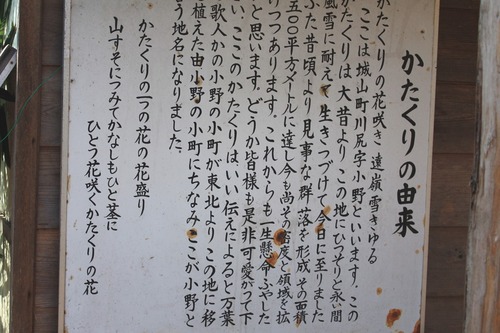 かたくりの由来
かたくりの花咲き 遠嶺雪きゆる
ここは城山町川尻字小野といいます。この
かたくりは、大昔より この地にひっそりと永い間
風雪に耐えて 生きつづけて今日に至りました
ふた昔頃より 見事な群落を形成 その面積
五〇〇平方メートルに達し今も尚その密度と領域を拡
けつつあります。これからも一生懸命ふやした
いと思います。どうか皆様も是非可愛がって下
い。ここのかたくりは、いい伝えによると万葉
歌人かの小野の小町が東北よりこの地に移
植えた由 小野の小町にちなみ ここが小野と
う地名になりました。
かたくりの一つの花の花盛り
山すそにつみてかなしもひと茎に
ひとつ花咲くかたくりの花